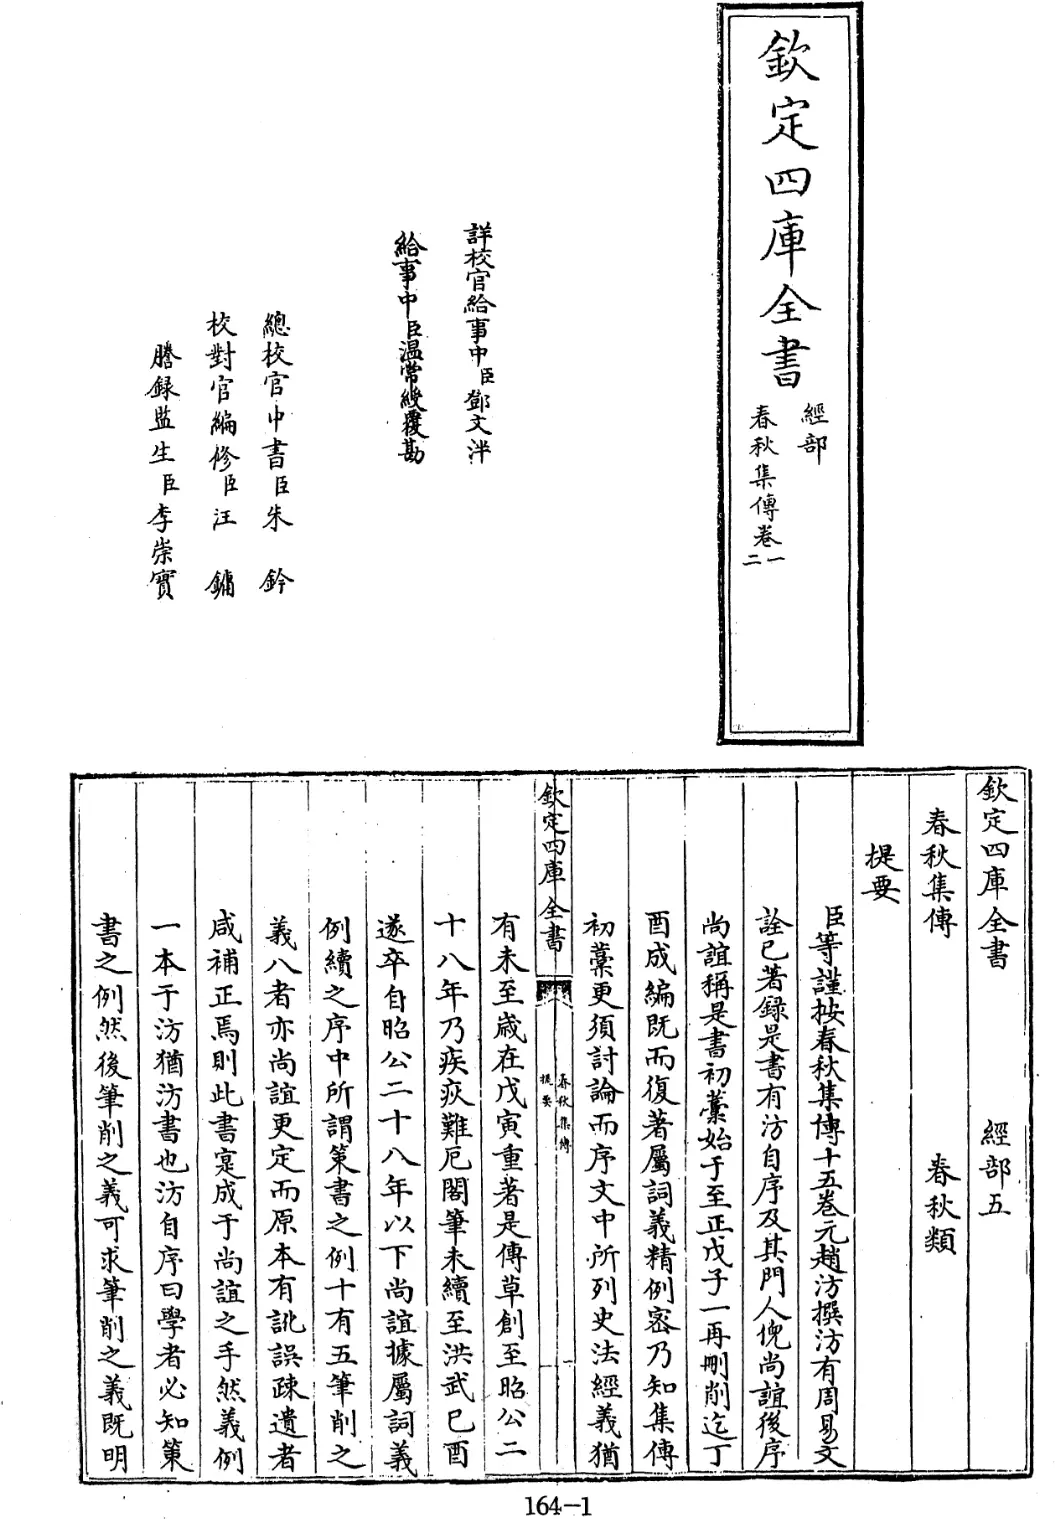 欽定四庫全書
經部
春秋集傳卷一
二
詳校官給事中臣鄧文泮
給事中臣温常綬覆勘
總校官中書臣朱鈐
校對官編修臣汪鏞
謄録監生臣李崇實
欽定四庫全書 經部五
春秋集傳 春秋類
提要
臣等謹按春秋集傳十五卷元趙汸撰汸有周易文
詮已著録是書有汸自序及其門人倪尚誼後序
尚誼稱是書初藳始于至正戊子一再刪削迄丁
酉成編既而復著屬詞義精例宻乃知集傳
初藳更須討論而序文中所列史法經義猶
有未至歲在戊寅重著是傳草創至昭公二
十八年乃疾疢難厄閣筆未續至洪武已酉
遂卒自昭公二十八年以下尚誼據屬詞義
例續之序中所謂策書之例十有五筆削之
義八者亦尚誼更定而原本有訛誤疎遺者
咸補正焉則此書寔成于尚誼之手然義例
一本于汸猶汸書也汸自序曰學者必知策
書之例然後筆削之義可求筆削之義既明
欽定四庫全書
春秋集傳
提要
一
164-1